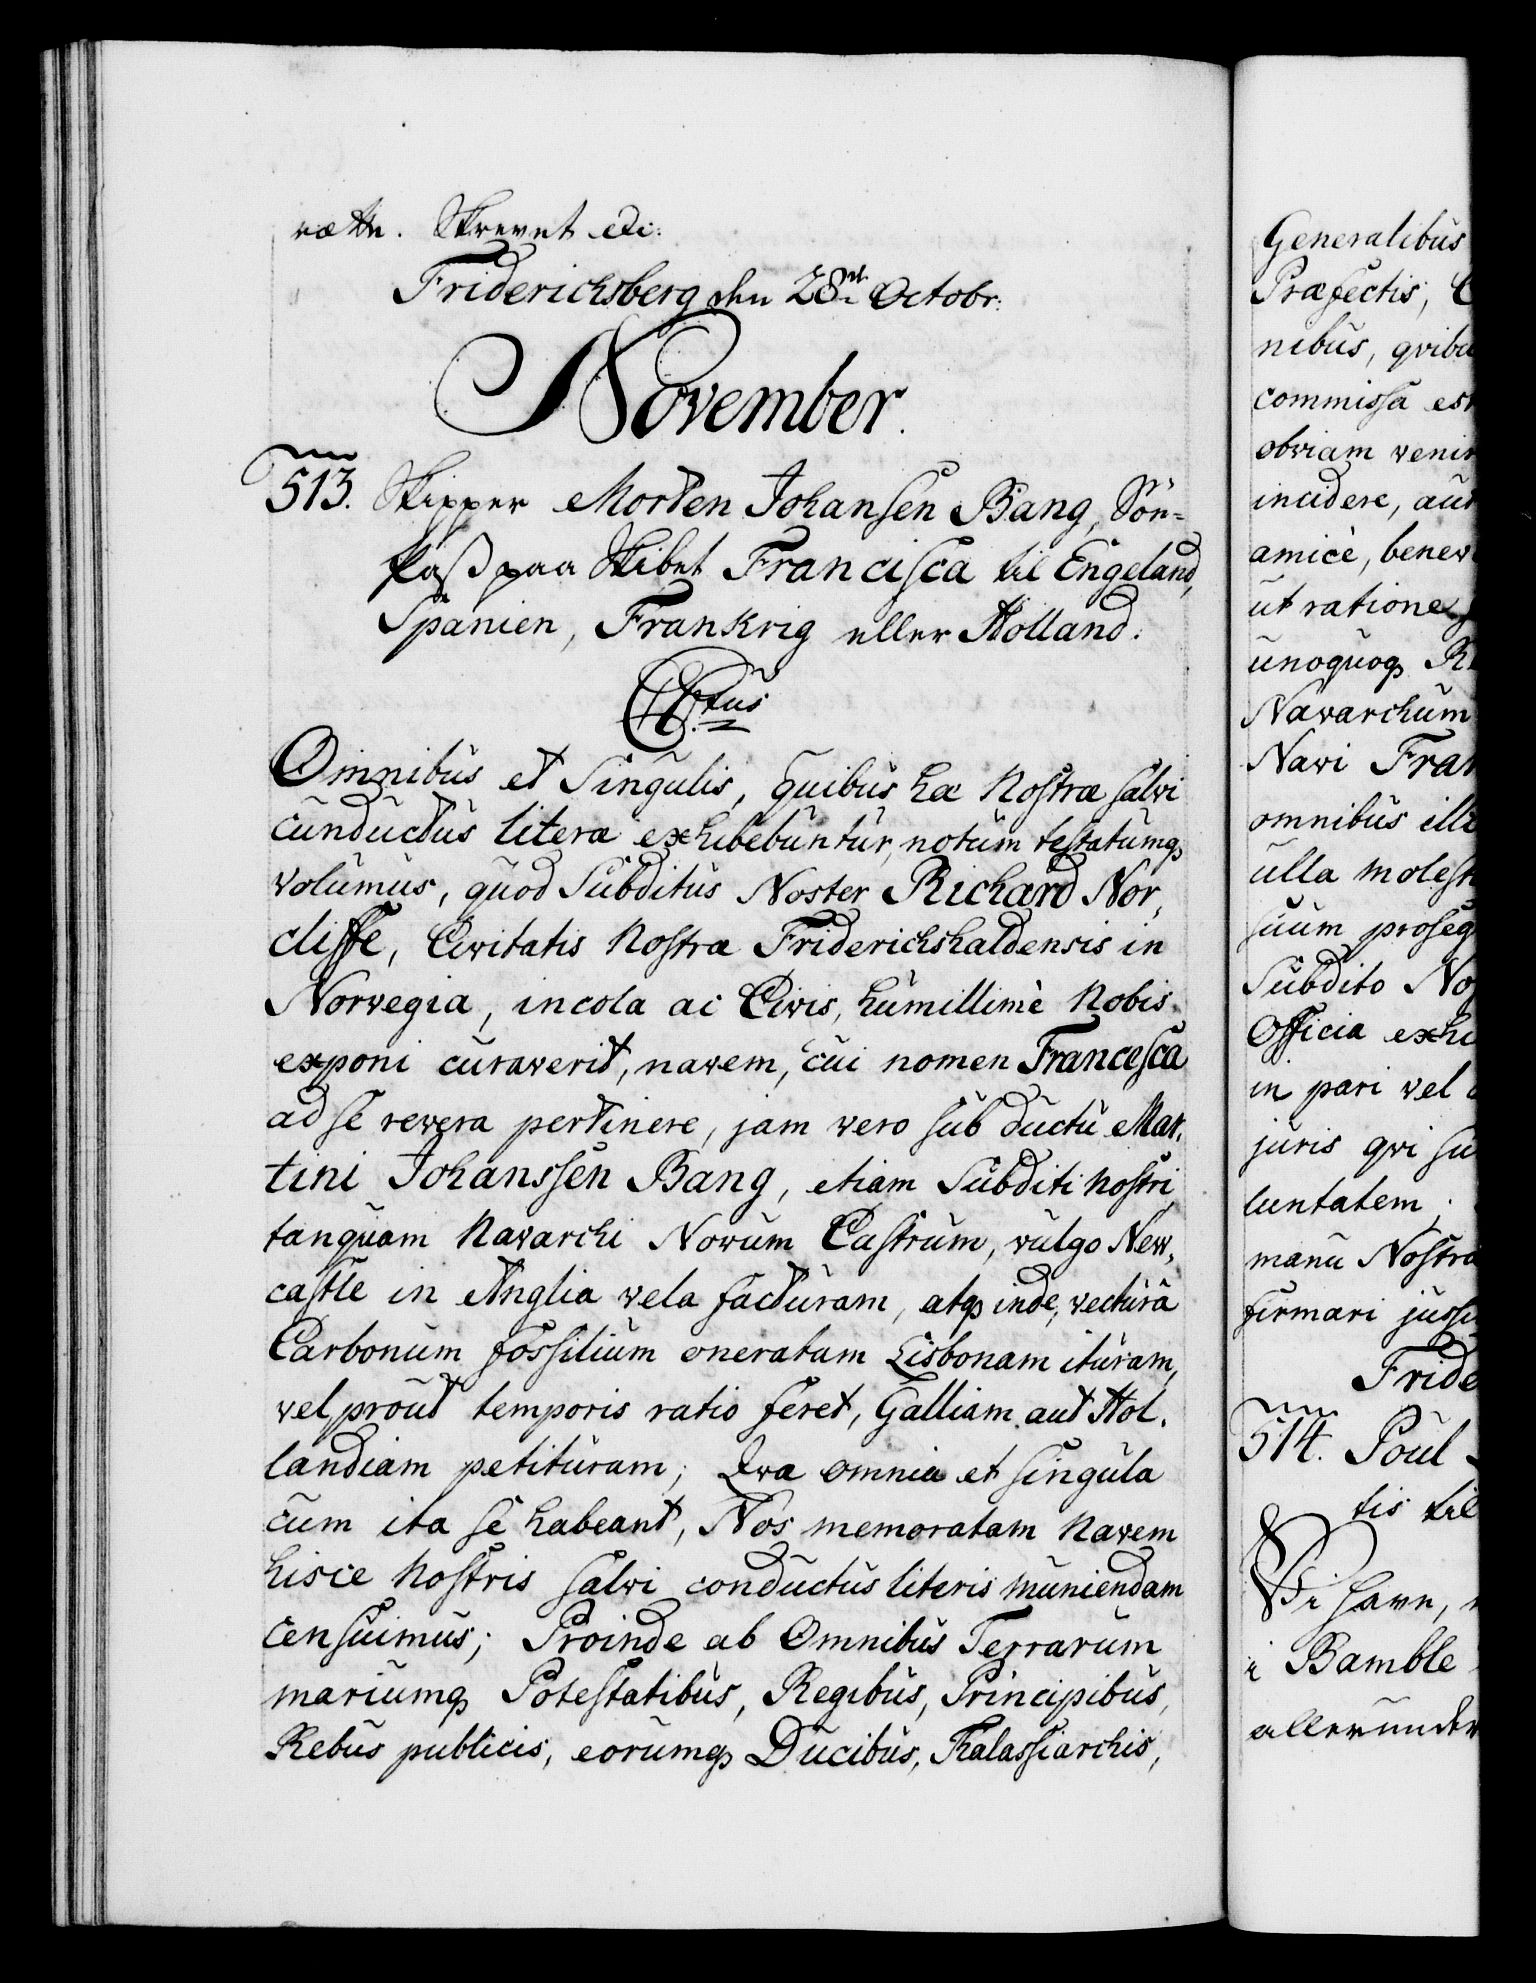 rætte. Skrevet etc:
Friderichsberg den 28de Octobr:
November.
513. Skipper Morten Johansen Bang, Söe-
Pass paa Skibet Francisca til Engeland,
Spanien, Frankrig eller Holland.
Ctus
Omnibus et Singulis, quibus hæ Nostræ salvi
cunductus literæ exhibebuntur, notum testatumqz
volumus, quod Subditus Noster Richard Nor,
cliffe, Civitatis Nostræ Friderichshaldensis in
Norvegia, incola ac Civis, humillimè Nobis
exponi curaverit, navem, cui nomen Francesca
ad se revera pertinere, jam vero sub ductu Mar,
tini Johanssen Bang, etiam Subditi Nostri
tanquam Navarchi Novum Castrum, vulgo New,
castle in Anglia vela facturam, atqz inde, vectura
Carbonum fossilium oneratam Lisbonam ituram,
vel prout temporis ratio feret, Galliam aut Hol,
landiam petituram; Qva omnia et singula
cum ita se habeant, Nos memoratam Navem
hisce Nostris salvi conductus literis muniendam
censuimus; Proinde ab Omnibus Terrarum
mariumqz Potestatibus, Regibus, Principibus,
Rebus publicis, eorumqz Ducibus, Thalassiarchis,
Generalibus
Præfectis, C
nibus, qvibu
commissa est
obviam venir
incidere, aut
amicè, benev
ut ratione
unoquoqz R
Navarchum
Navi Fran
omnibus ill
ulla molest
suum proseq
Subdito No
Officia exhi
in pari vel
juris qvi su
luntatem.
manu Nostra
firmari juss
Fride
514. Poul
tis til
Vi have,
i Bamble
allerunder